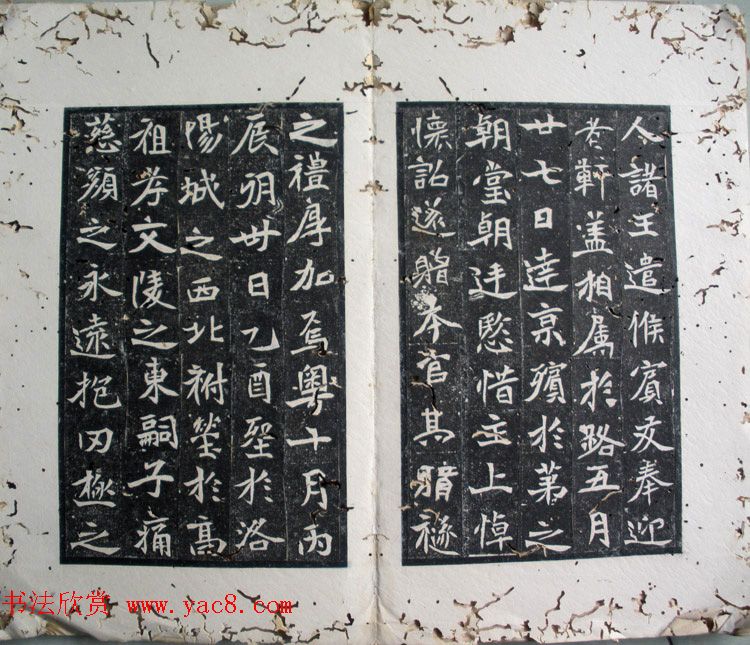 人諸王遣候賓友奉迎
者軒盖相属於路五月
廿七日達京殯於第之
朝堂朝廷慜惜主上悼
懷詔遂贈本官其賵襚
之禮厚加焉粵十月丙
辰朔卅日乙酉窆於洛
陽城之西北祔塋於高
祖孝文陵之東嗣子痛
慈顏之永遠抱罔極之
书法欣赏 www.yac8.com